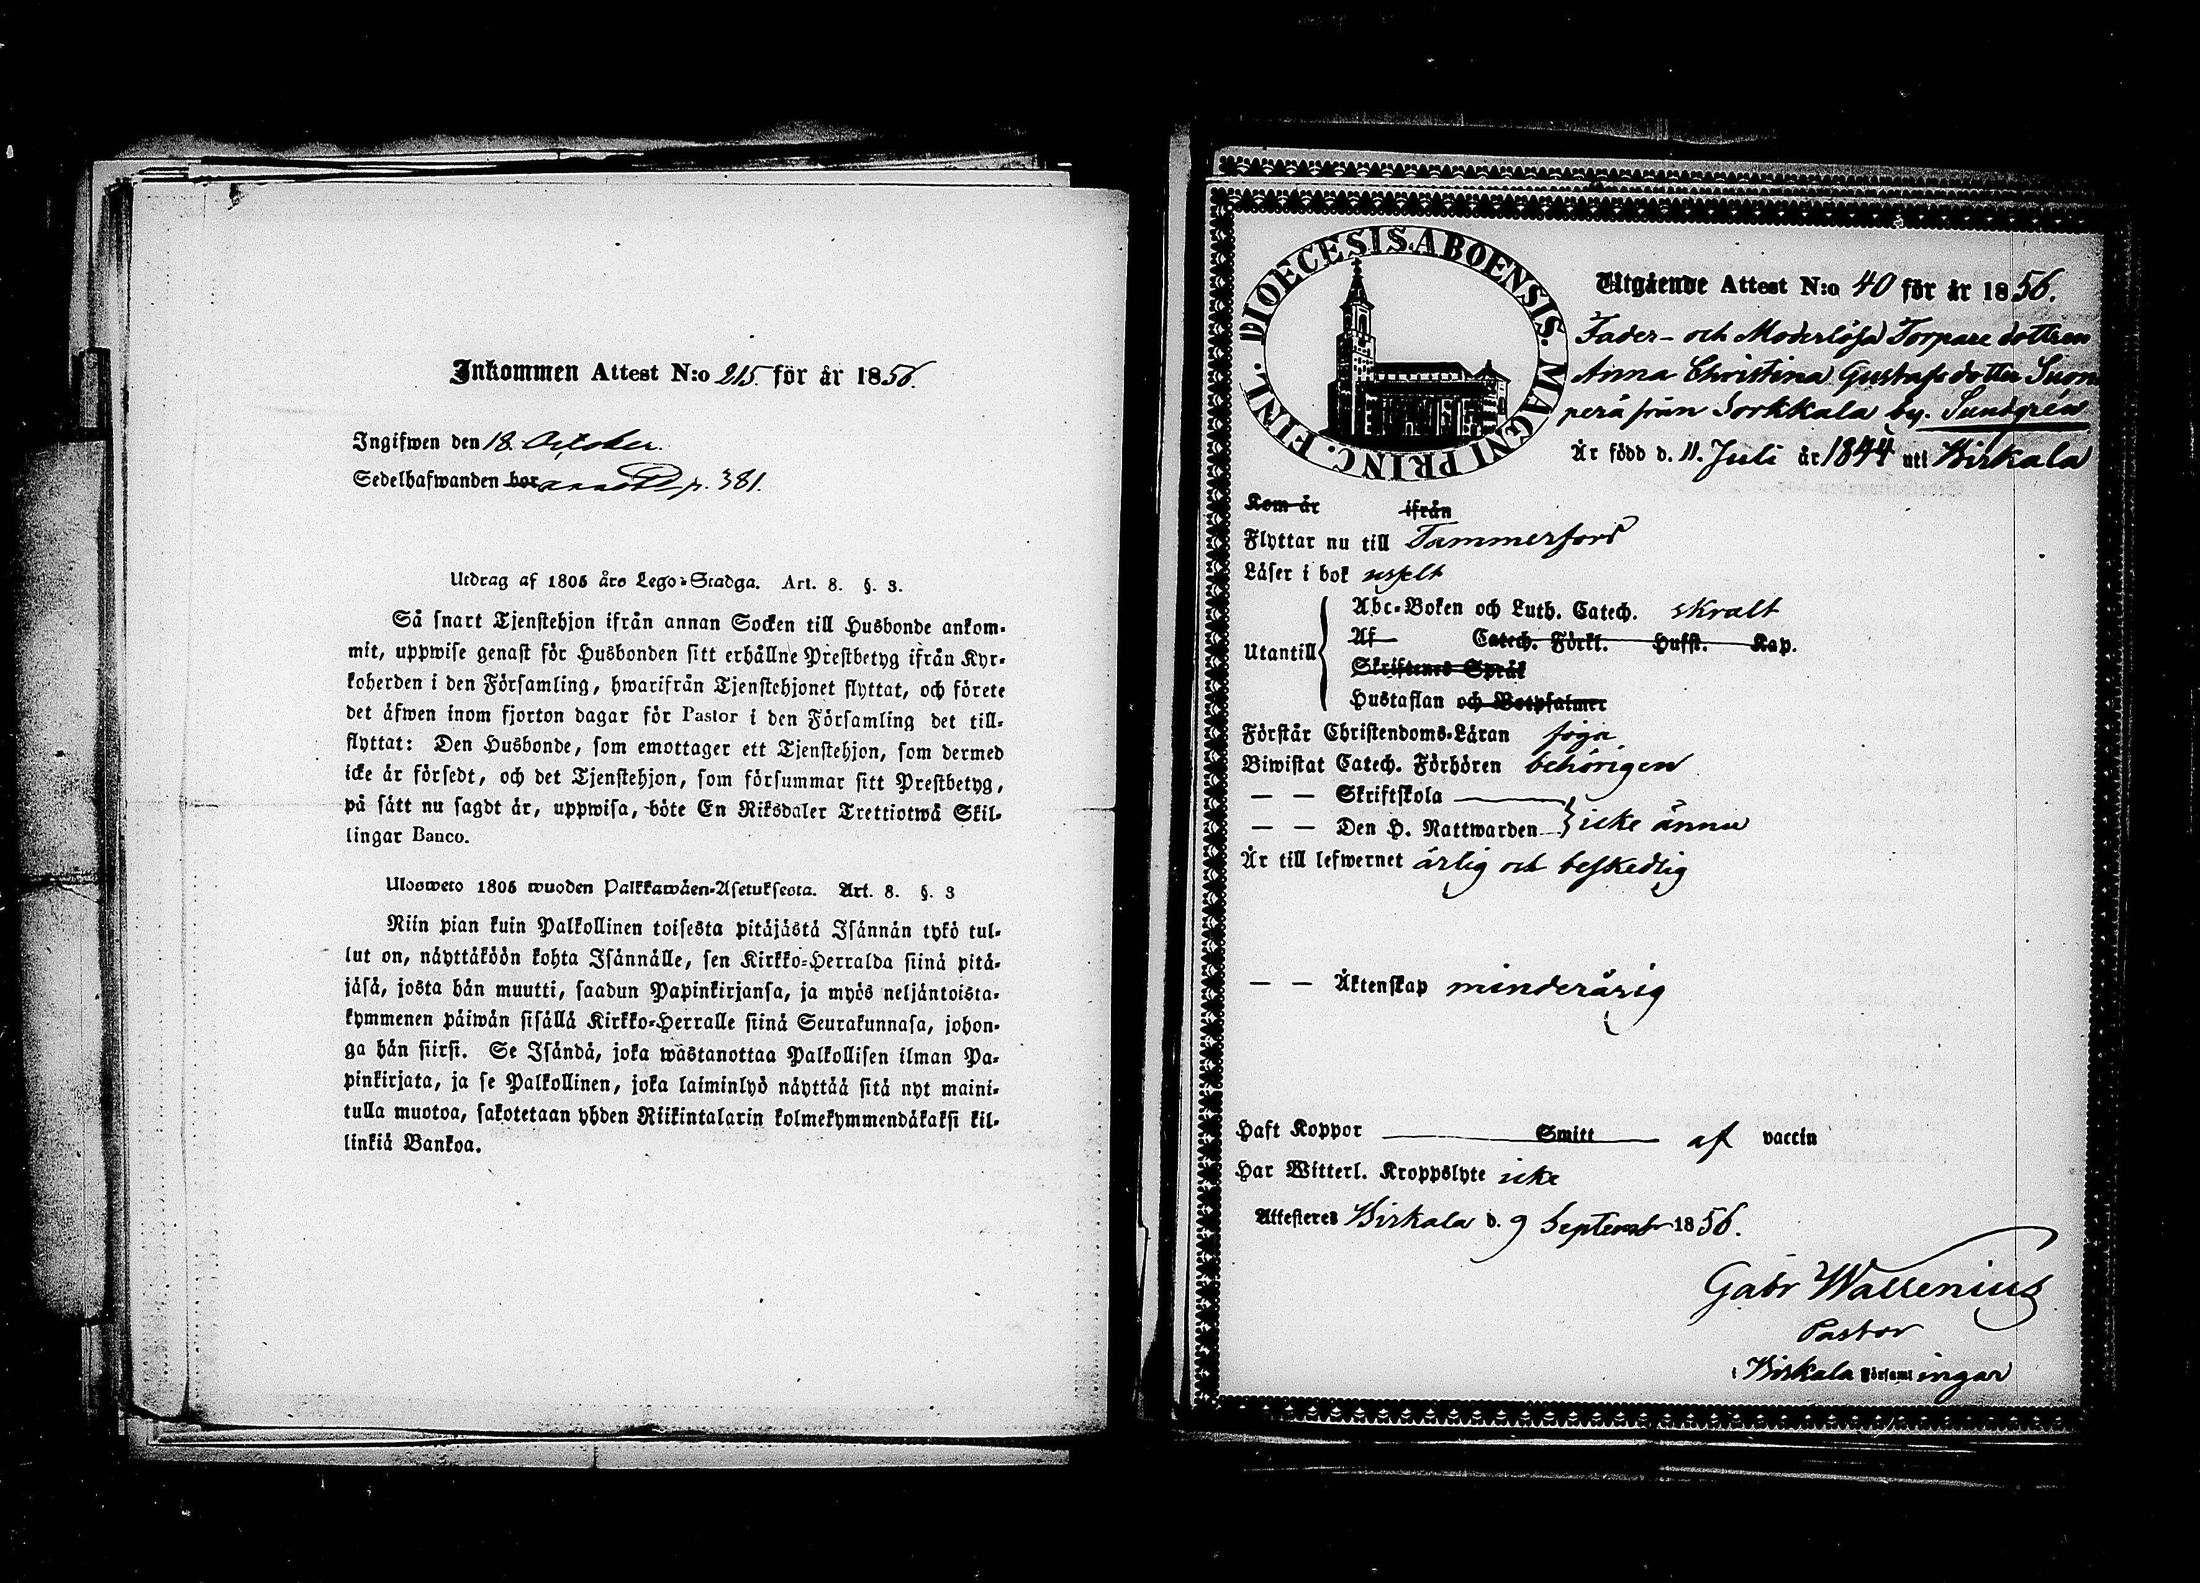 Inkommen Attest N:o 215. för år 1856.
Ingifwen den 18. October.
Sedelhafwanden bor p. 381.
Utdrag af 1805 års Lego-Stadga. Art. 8. §. 3.
Så snart Tjenstehjon ifrån annan Socken till Husbonde ankom-
mit, uppwise genast för Husbonden sitt erhållne Prestbetyg ifrån Kyr-
koherden i den Församling, hwarifrån Tjenstehjonet flyttat, och förete
det äfwen inom fjorton dagar för Pastor i den Församling det till-
flyttat: Den Husbonde, som emottager ett Tjenstehjon, som dermed
icke är försedt, och det Tjenstehjon, som försummar sitt Prestbetyg,
på sätt nu sagdt är, uppwisa, böte En Riksdaler Trettiotwå Skil-
lingar Banco.
Ulosweto 1805 wuoden Palkkawäen-Asetuksesta. Art. 8. §. 3
Niin pian kuin Palkollinen toisesta pitäjästä Isännän tykö tul-
lut on, näyttäköön kohta Isännälle, sen Kirkko-Herralda siinä pitä-
jäsä, josta hän muutti, saadun Papinkirjansa, ja myös neljäntoista-
kymmenen päiwän sisällä Kirkko-Herralle siinä Seurakunnasa, johon-
ga hän siirsi. Se Isändä, joka wastanottaa Palkollisen ilman Pa-
pinkirjata, ja se Palkollinen, joka laiminlyö näyttää sitä nyt maini-
tulla muotoa, sakotetaan yhden Riikintalarin kolmekymmendäkaksi kil-
linkiä Bankoa.
DIOECESIS. ABOENSIS. MAGNI PRINC. FINL.
Utgående Attest N:o 40 för år 1856.
Fader- och Moderlösa Torpare dottren
Anna Christina Gustafsdotter Suon
perä från Sorkkala by. Sundgrén
Är född d. 11. Juli år 1844 uti Birkala
Kom år ifrån
Flyttar nu till Tammerfors
Läser i bok uselt
Utantill
Abc-Boken och Luth. Catech. skralt
Af Catech. Förkl. Hufst. Kap.
Skriftenes Språk
Hustaflan och Botpsalmer
Förstår Christendoms-Läran föga
Biwistat Catech. Förhören behörigen
— — Skriftskola
— — Den H. Nattwarden icke ännu
Är till lefwernet ärlig och beskedlig
— — Äktenskap minderårig
Haft Koppor Smitt af vaccin
Har Witterl. Kroppslyte icke
Attesteres Birkala d. 9 Septembr 1856.
Gabr Wallenius
Pastor
i Birkala Församl ingar